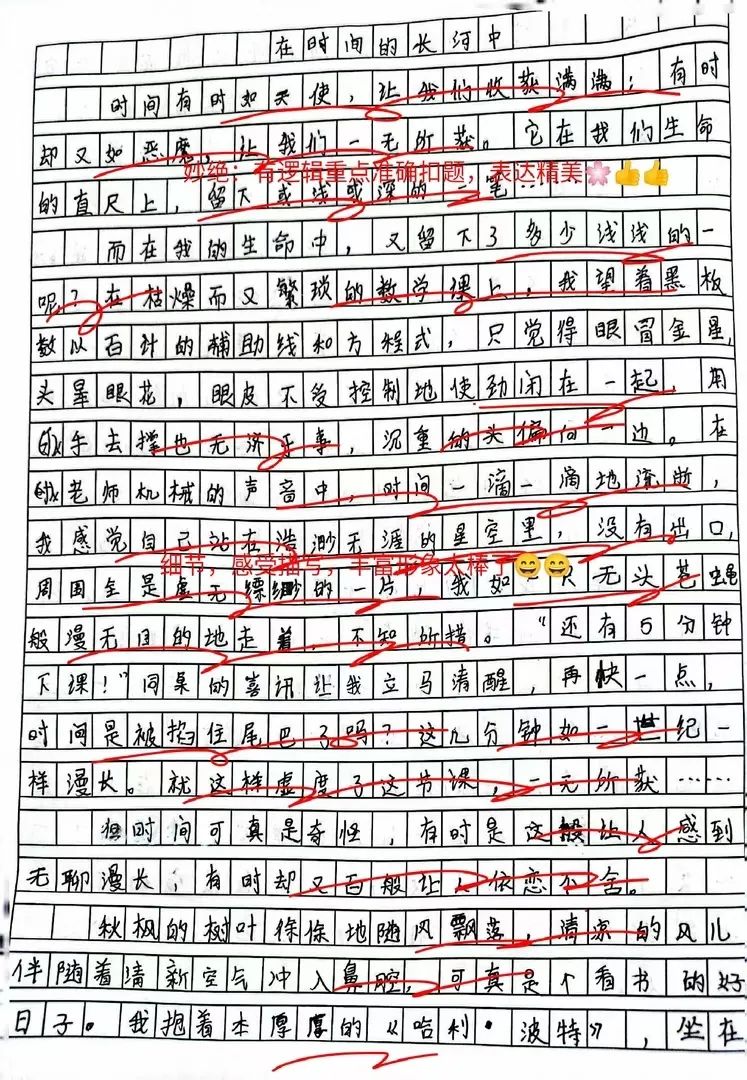 在时间的长河中
时间有时如天使，让我们收获满满；有时
却又如恶魔，让我们一无所获。它在我们生命
妙绝：有逻辑重点准确扣题，表达精美🌸👍👍
的直尺上，留下或浅或深的一笔……
而在我的生命中，又留下了多少浅浅的一
呢？在枯燥而又繁琐的数学课上，我望着黑板
数以百计的辅助线和方程式，只觉得眼冒金星，
头晕眼花，眼皮不受控制地使劲闭在一起，用
手去撑也无济于事，沉重的头偏向一边。在
老师机械的声音中，时间一滴一滴地流逝，
我感觉自己站在浩渺无涯的星空里，没有出口，
细节，感受描写，丰富形象太棒了😄😄
周围全是虚无缥缈的一片，我如一只无头苍蝇
般漫无目的地走着，不知所措。“还有5分钟
下课！”同桌的喜讯让我立马清醒，再快一点，
时间是被掐住尾巴了吗？这几分钟如一世纪一
样漫长。就这样虚度了这节课，一无所获……
但时间可真是奇怪，有时是这般让人感到
无聊漫长，有时却又百般让人依恋不舍。
秋枫的树叶徐徐地随风飘落，清凉的风儿
伴随着清新空气冲入鼻腔，可真是个看书的好
日子。我抱着本厚厚的《哈利·波特》，坐在